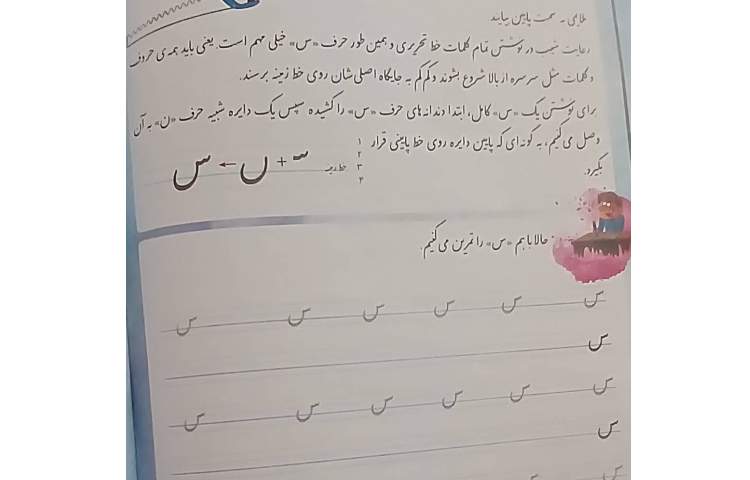 طلایی ـ سمت پایین بیایند
رعایت شیب در نوشتن تمام کلمات خط تحریری و همین طور حرف «س» خیلی مهم است. یعنی باید همه‌ی حروف
و کلمات مثل سرسره از بالا شروع بشوند و کم کم به جایگاه اصلی‌شان روی خط زمینه برسند.
برای نوشتن یک «س» کامل، ابتدا دندانه‌های حرف «س» را کشیده و سپس یک دایره شبیه حرف «ن» به آن
وصل می‌کنیم، به گونه‌ای که پایین دایره روی خط پایینی قرار
بگیرد.
۱
۲
خط زمینه ۳
۴
سـ + ں ← س
حالا با هم «س» را تمرین می‌کنیم.
س س س س س س
س
س س س س س س
س
س س